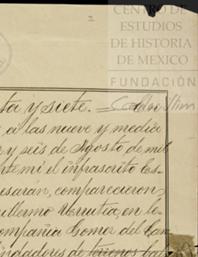 CENTRO DE
ESTUDIOS
DE HISTORIA
DE MEXICO
FUNDACIÓN
ta y siete.
a las nueve y media
y seis de Agosto de mil
te mi el infrascrito Es-
esarán, comparecieron
illermo Urrutia, en la
ompañia Gomez del Cam
indadores de terrenos bal